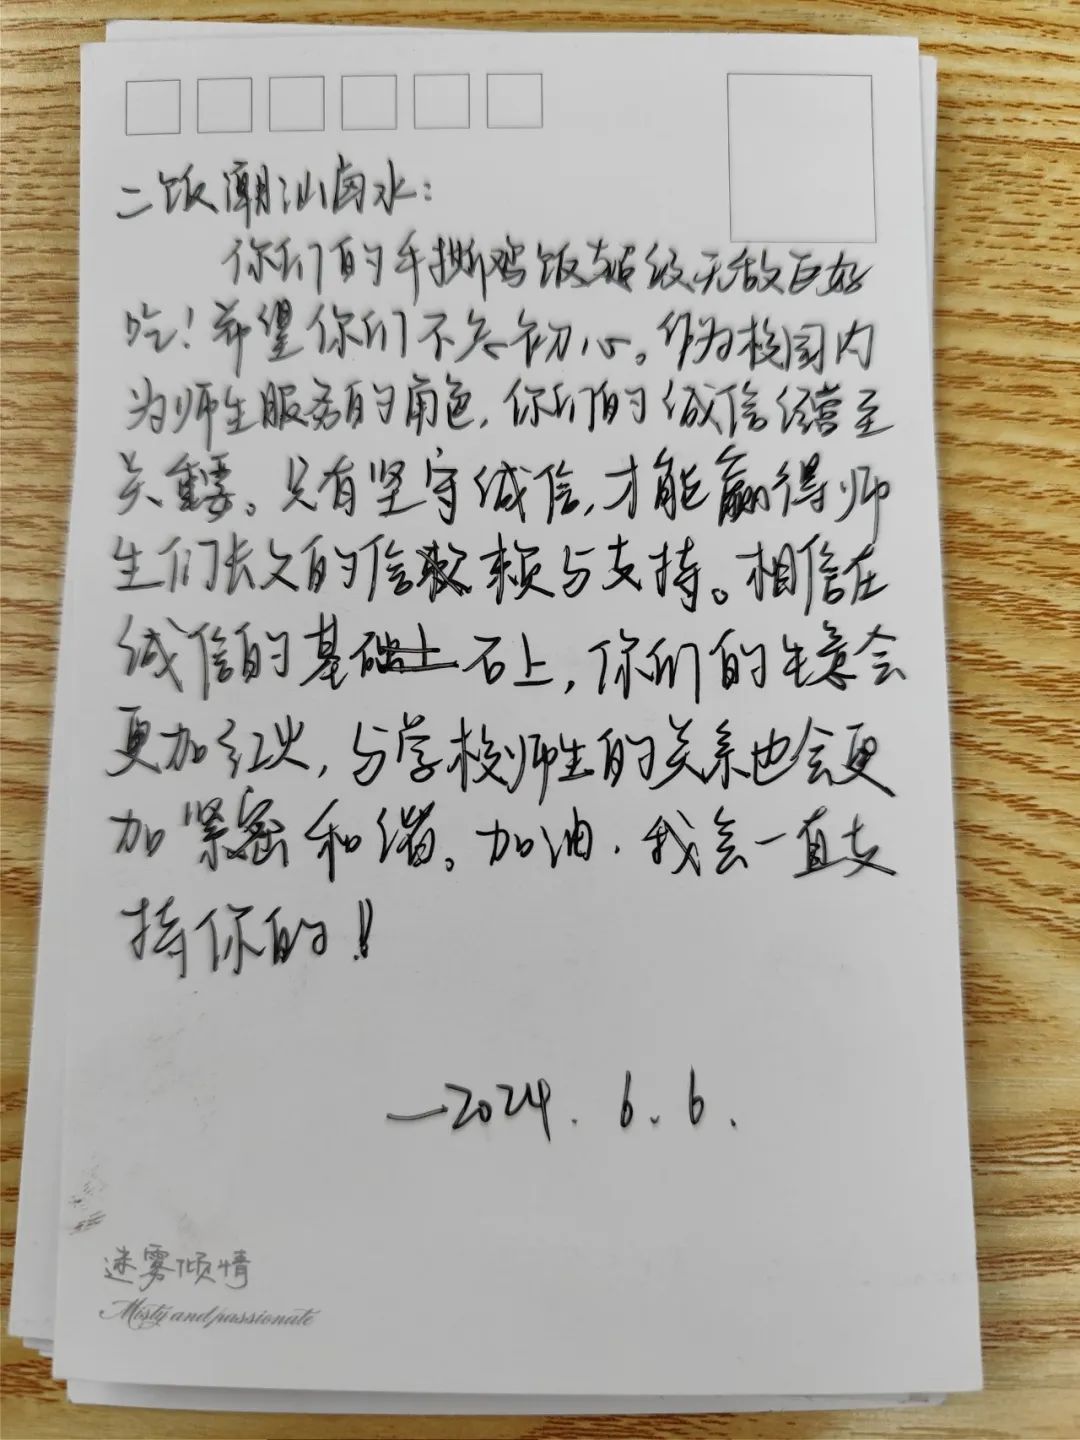 二饭潮汕卤水：
你们的手撕鸡饭超级无敌巨好
吃！希望你们不忘初心。作为校园内
为师生服务的角色，你们的诚信经营至
关重要。只有坚守诚信，才能赢得师
生们长久的信赖与支持。相信在
诚信的基石上，你们的生意会
更加红火，与学校师生的关系也会更
加紧密和谐。加油，我会一直支
持你的！！
—2024.6.6.
迷雾倾情
Misty and passionate